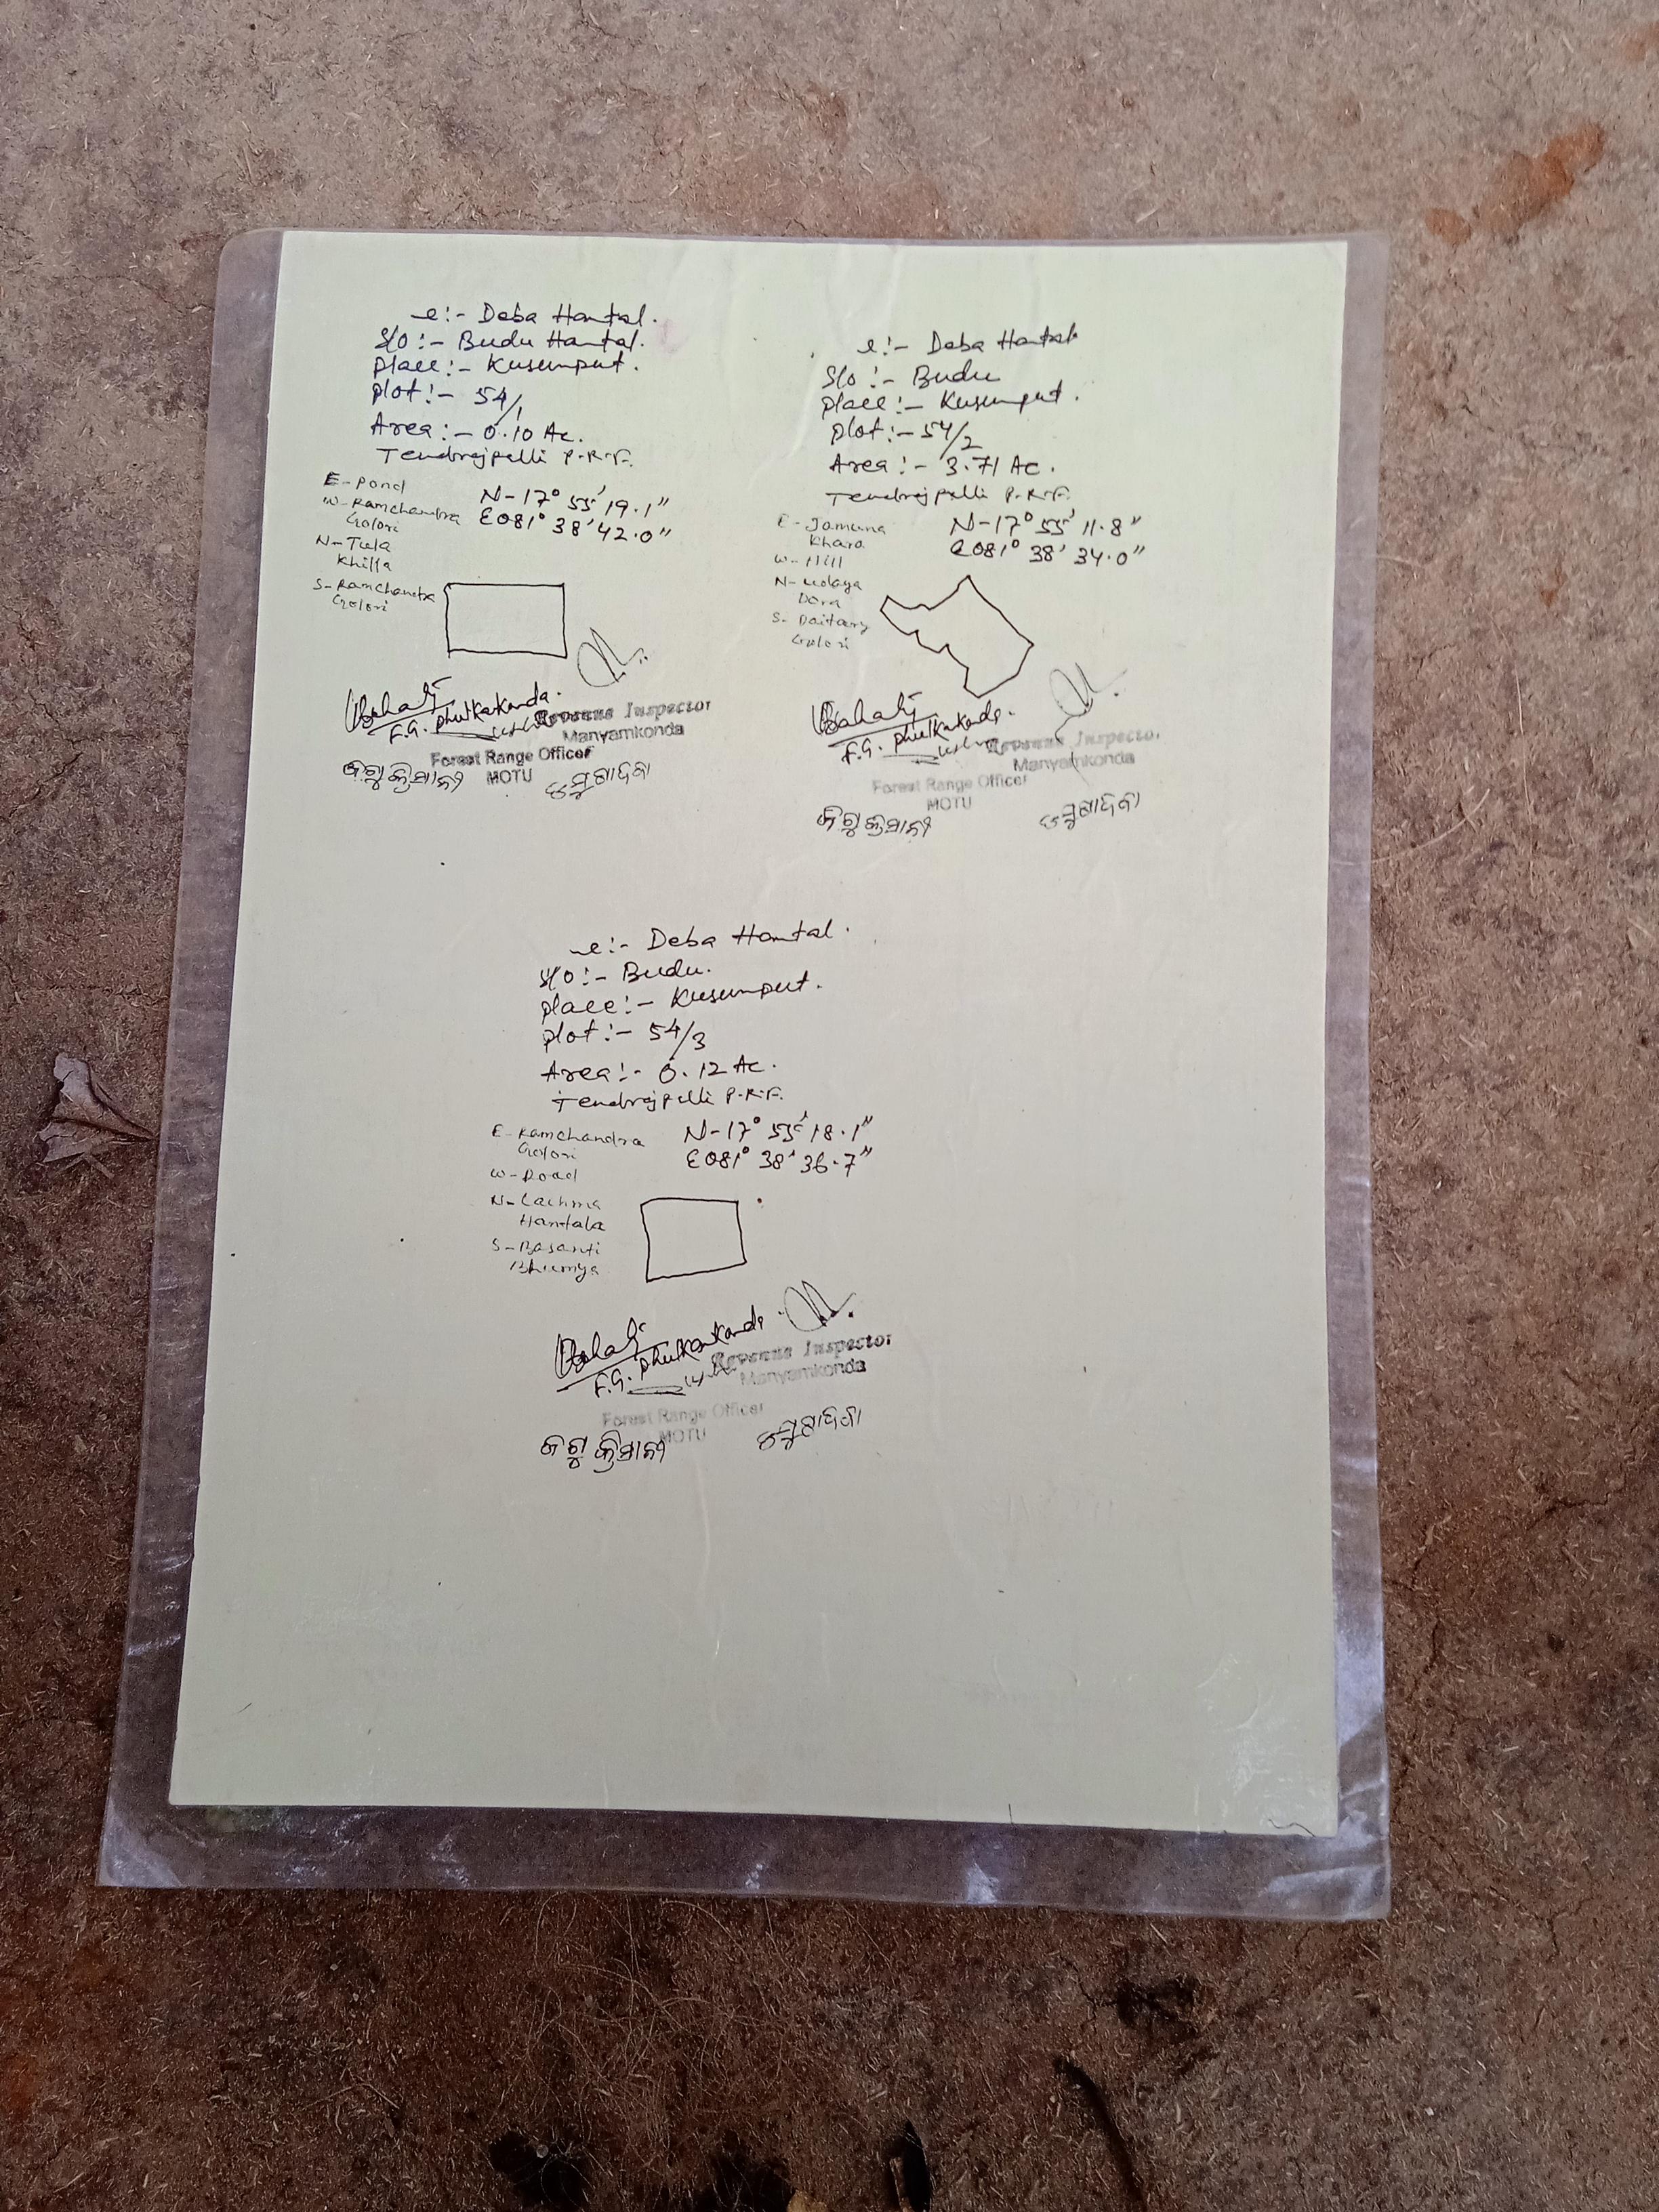 e:- Deba Hantal.
S/o :- Budu Hantal.
place:- Kusumput.
plot:- 54/1
Area:- 0.10 Ac.
Tendrajpalli P.R.F.
E- Pond
W- Ramchandra
Golori
N- Tula
Khilla
S- Ramchandra
Golori
N- 17° 55' 19.1"
E 081° 38' 42.0"
F.G. Phulkakonda.
Revenue Inspector
Manyamkonda
Forest Range Officer
MOTU
e:- Deba Hantal
S/o :- Budu
place:- Kusumput.
plot:- 54/2
Area:- 3.71 Ac.
Tendrajpalli P.R.F.
E- Jamuna
Khara
W- Hill
N- Udaya
Dora
S- Daitary
Golori
N- 17° 55' 11.8"
E 081° 38' 34.0"
F.G. Phulkakonda.
Revenue Inspector
Manyamkonda
Forest Range Officer
MOTU
e:- Deba Hantal.
S/o :- Budu.
place:- Kusumput.
plot:- 54/3
Area:- 0.12 Ac.
Tendrajpalli P.R.F.
E- Ramchandra
Golori
W- Road
N- Lachma
Hantala
S- Basanti
Bhumya
N- 17° 55' 18.1"
E 081° 38' 36.7"
F.G. Phulkakonda.
Revenue Inspector
Manyamkonda
Forest Range Officer
MOTU